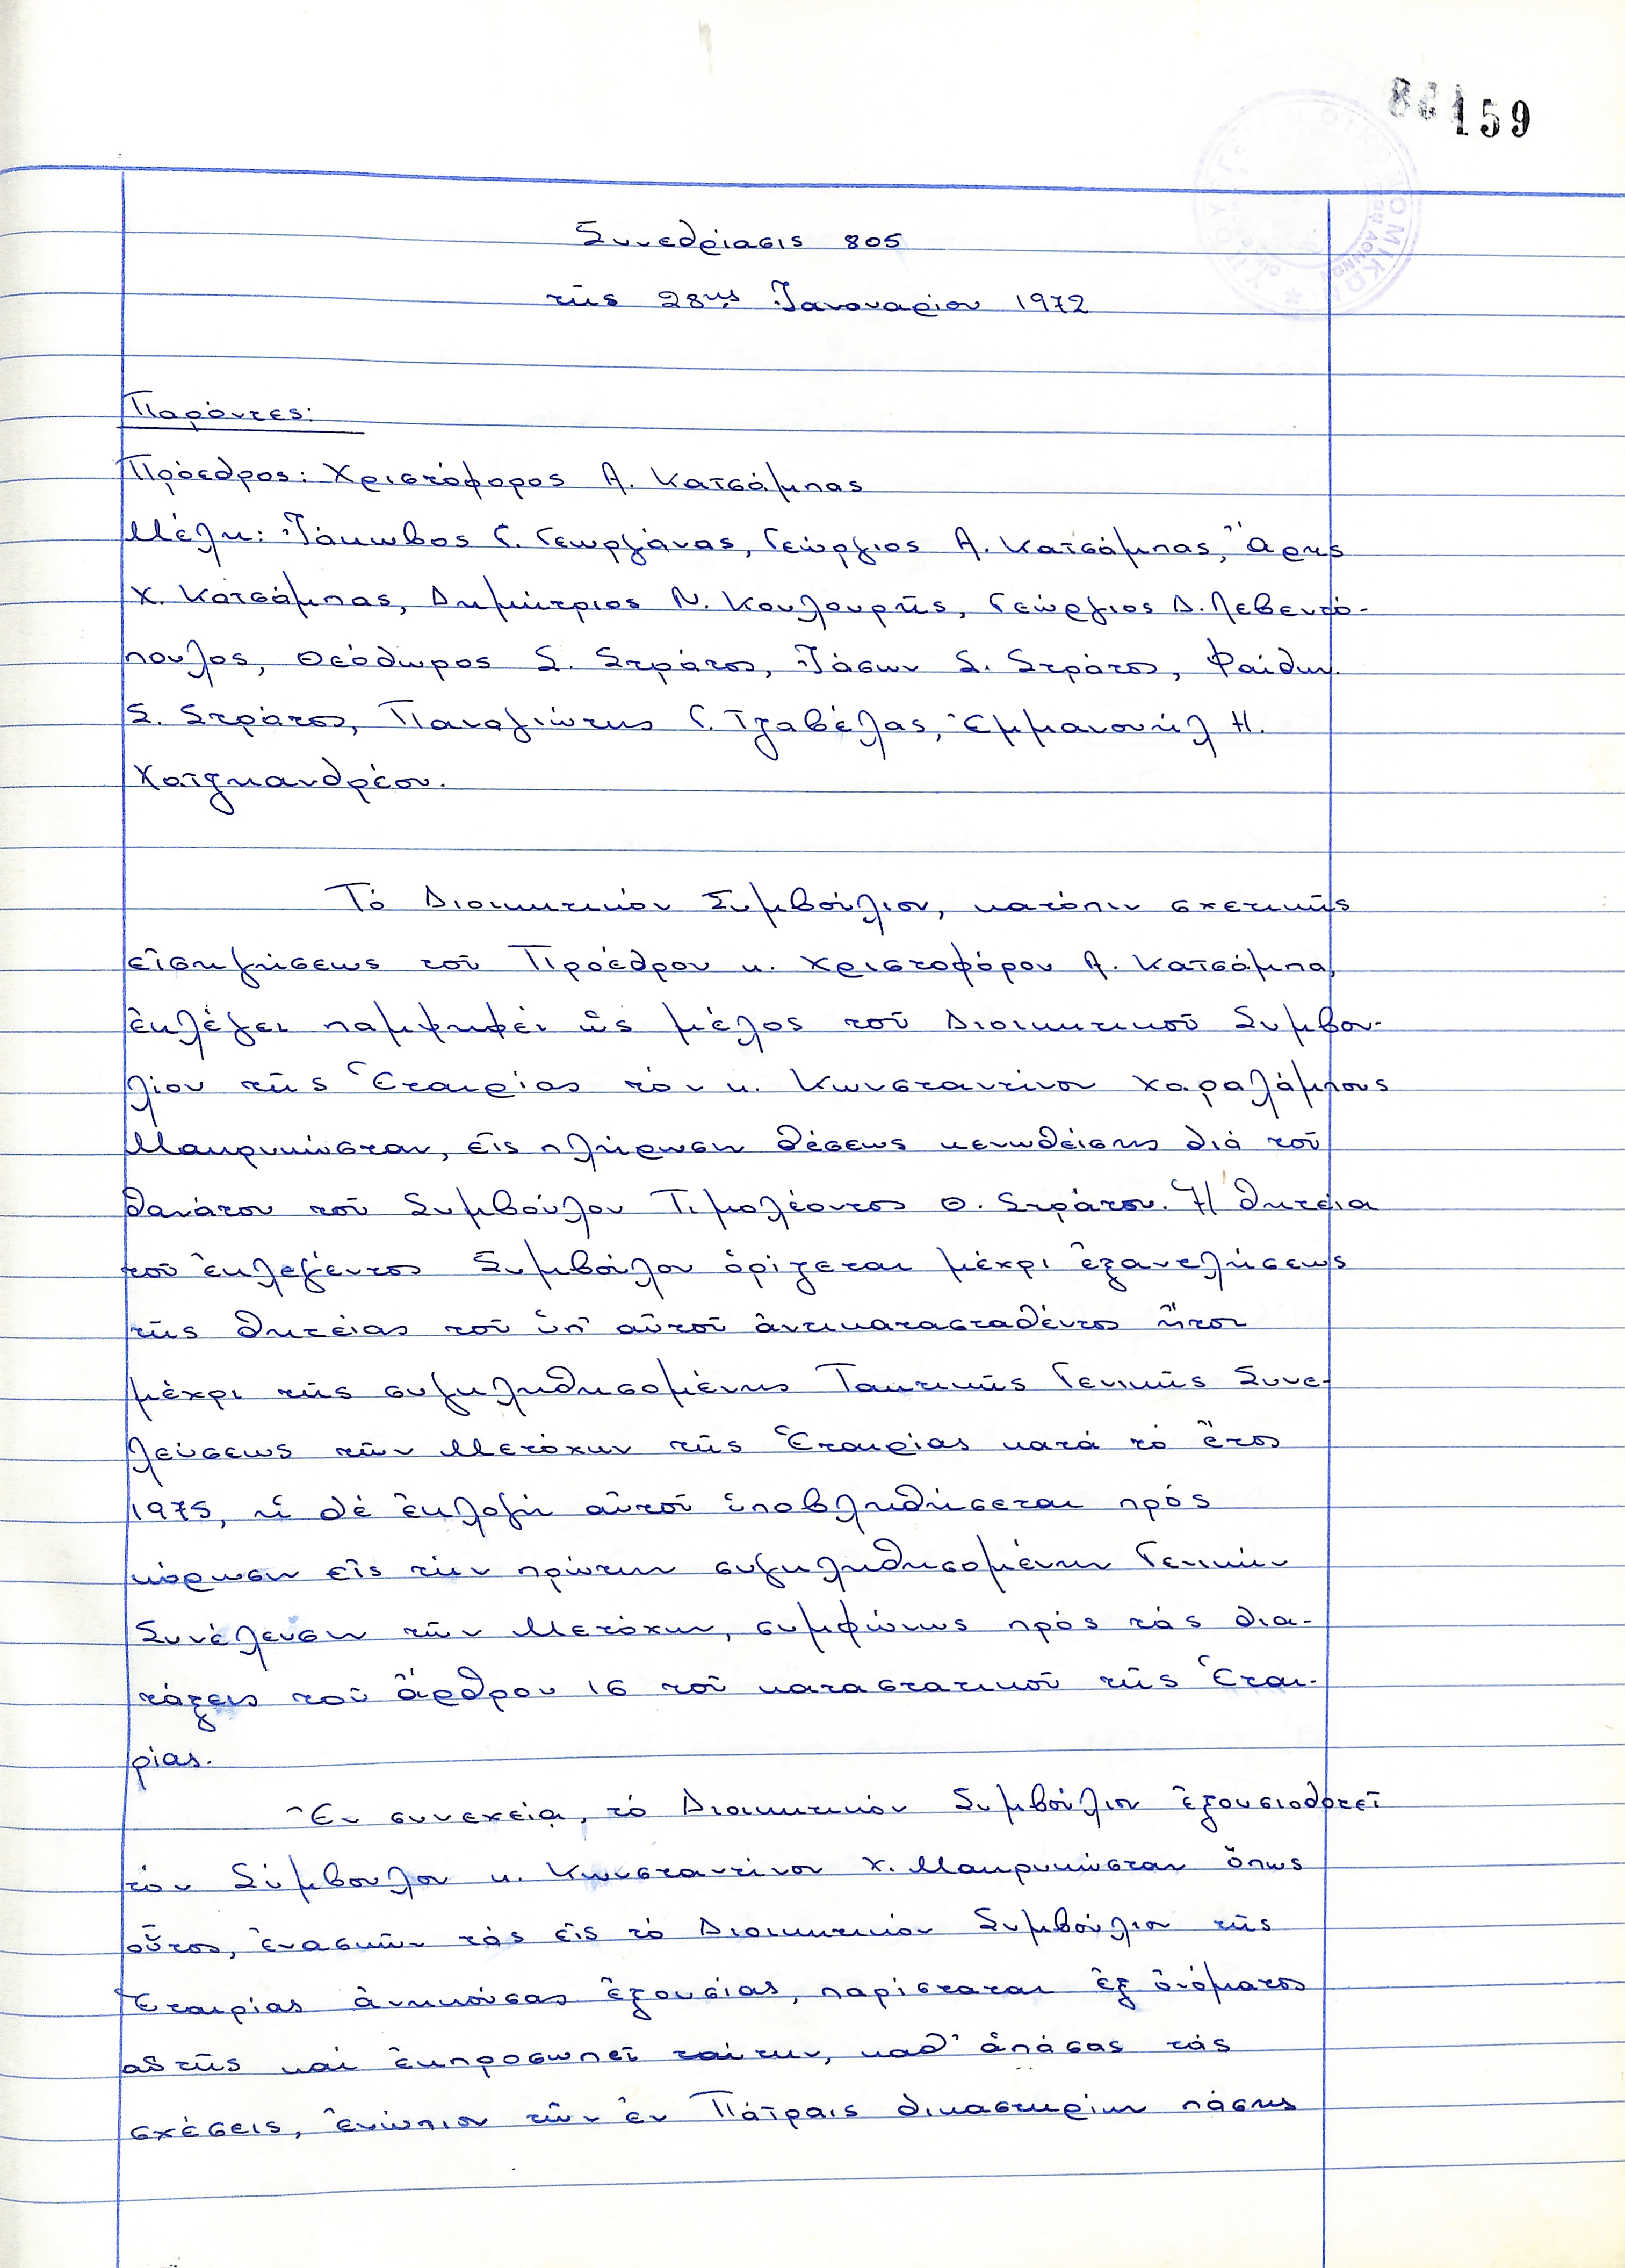 159
Συνεδρίασις 805
τῆς 28ης Ἰανουαρίου 1972
Παρόντες:
Πρόεδρος: Χριστόφορος Α. Κατσάμπας
Μέλη: Ἰάκωβος Γ. Γεωργάνας, Γεώργιος Α. Κατσάμπας, Ἄρης
Χ. Κατσάμπας, Δημήτριος Ν. Κουλουρῆς, Γεώργιος Δ. Λεβεντό-
πουλος, Θεόδωρος Σ. Στράτος, Ἰάσων Σ. Στράτος, Φαίδων
Σ. Στράτος, Παναγιώτης Γ. Τζαβέλας, Ἐμμανουήλ Η.
Χατζηανδρέου.
Τό Διοικητικόν Συμβούλιον, κατόπιν σχετικῆς
εἰσηγήσεως τοῦ Προέδρου κ. Χριστοφόρου Α. Κατσάμπα,
ἐκλέγει παμψηφεί ὡς μέλος τοῦ Διοικητικοῦ Συμβου-
λίου τῆς Ἑταιρίας τόν κ. Κωνσταντίνον Χαραλάμπους
Μακρυκώσταν, εἰς πλήρωσιν θέσεως κενωθείσης διά τοῦ
θανάτου τοῦ Συμβούλου Τιμολέοντος Θ. Στράτου. Ἡ θητεία
τοῦ ἐκλεγέντος Συμβούλου ὁρίζεται μέχρι ἐξαντλήσεως
τῆς θητείας τοῦ ὑπ' αὐτοῦ ἀντικατασταθέντος ἤτοι
μέχρι τῆς συγκληθησομένης Τακτικῆς Γενικῆς Συνε-
λεύσεως τῶν Μετόχων τῆς Ἑταιρίας κατά τό ἔτος
1975, ἡ δέ ἐκλογή αὐτοῦ ὑποβληθήσεται πρός
κύρωσιν εἰς τήν πρώτην συγκληθησομένην Γενικήν
Συνέλευσιν τῶν Μετόχων, συμφώνως πρός τάς δια-
τάξεις τοῦ ἄρθρου 16 τοῦ καταστατικοῦ τῆς Ἑται-
ρίας.
Ἐν συνεχείᾳ, τό Διοικητικόν Συμβούλιον ἐξουσιοδοτεῖ
τόν Σύμβουλον κ. Κωνσταντίνον Χ. Μακρυκώσταν ὅπως
οὗτος, ἐνασκῶν τάς εἰς τό Διοικητικόν Συμβούλιον τῆς
Ἑταιρίας ἀνηκούσας ἐξουσίας, παρίσταται ἐξ ὀνόματος
αὐτῆς καί ἐκπροσωπεῖ ταύτην, καθ' ἁπάσας τάς
σχέσεις, ἐνώπιον τῶν ἐν Πάτραις δικαστηρίων πάσης